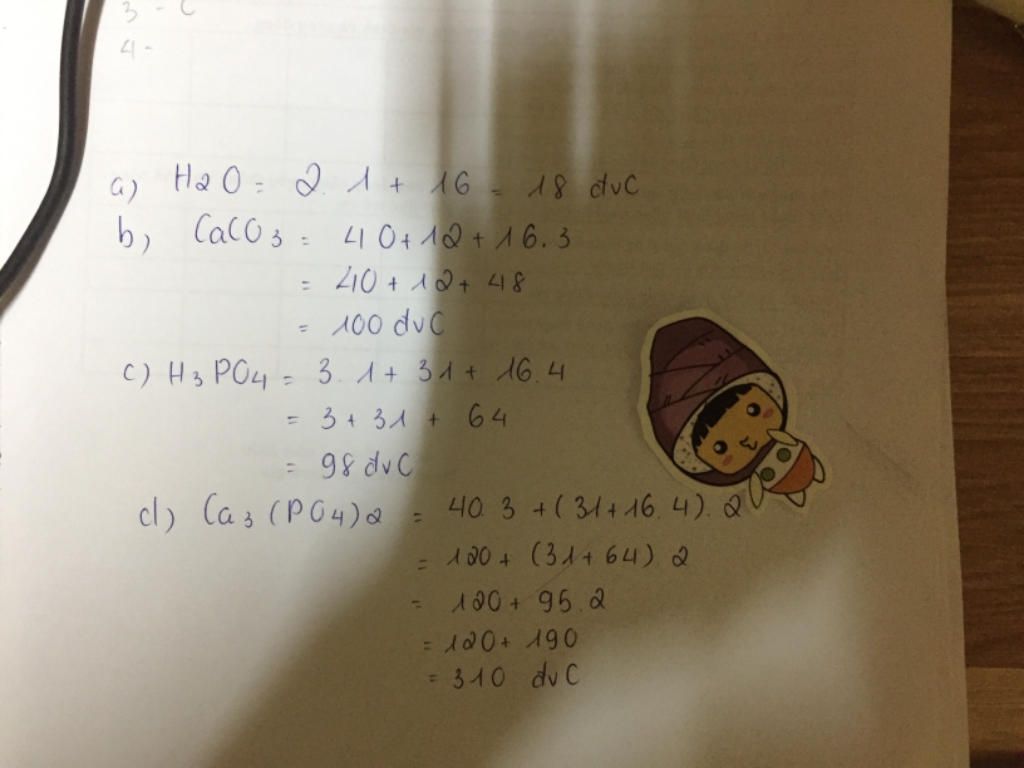 3 - C
4 -
a) H2O = 2. 1 + 16 = 18 dvC
b) CaCO3 = 40+12+16.3
= 40+12+ 48
= 100 dvC
c) H3PO4 = 3. 1+ 31+ 16.4
= 3+ 31 + 64
= 98 dvC
d) Ca3(PO4)2 = 40.3 +(31+16.4).2
= 120+ (31+64).2
= 120+ 95.2
= 120+ 190
= 310 dvC